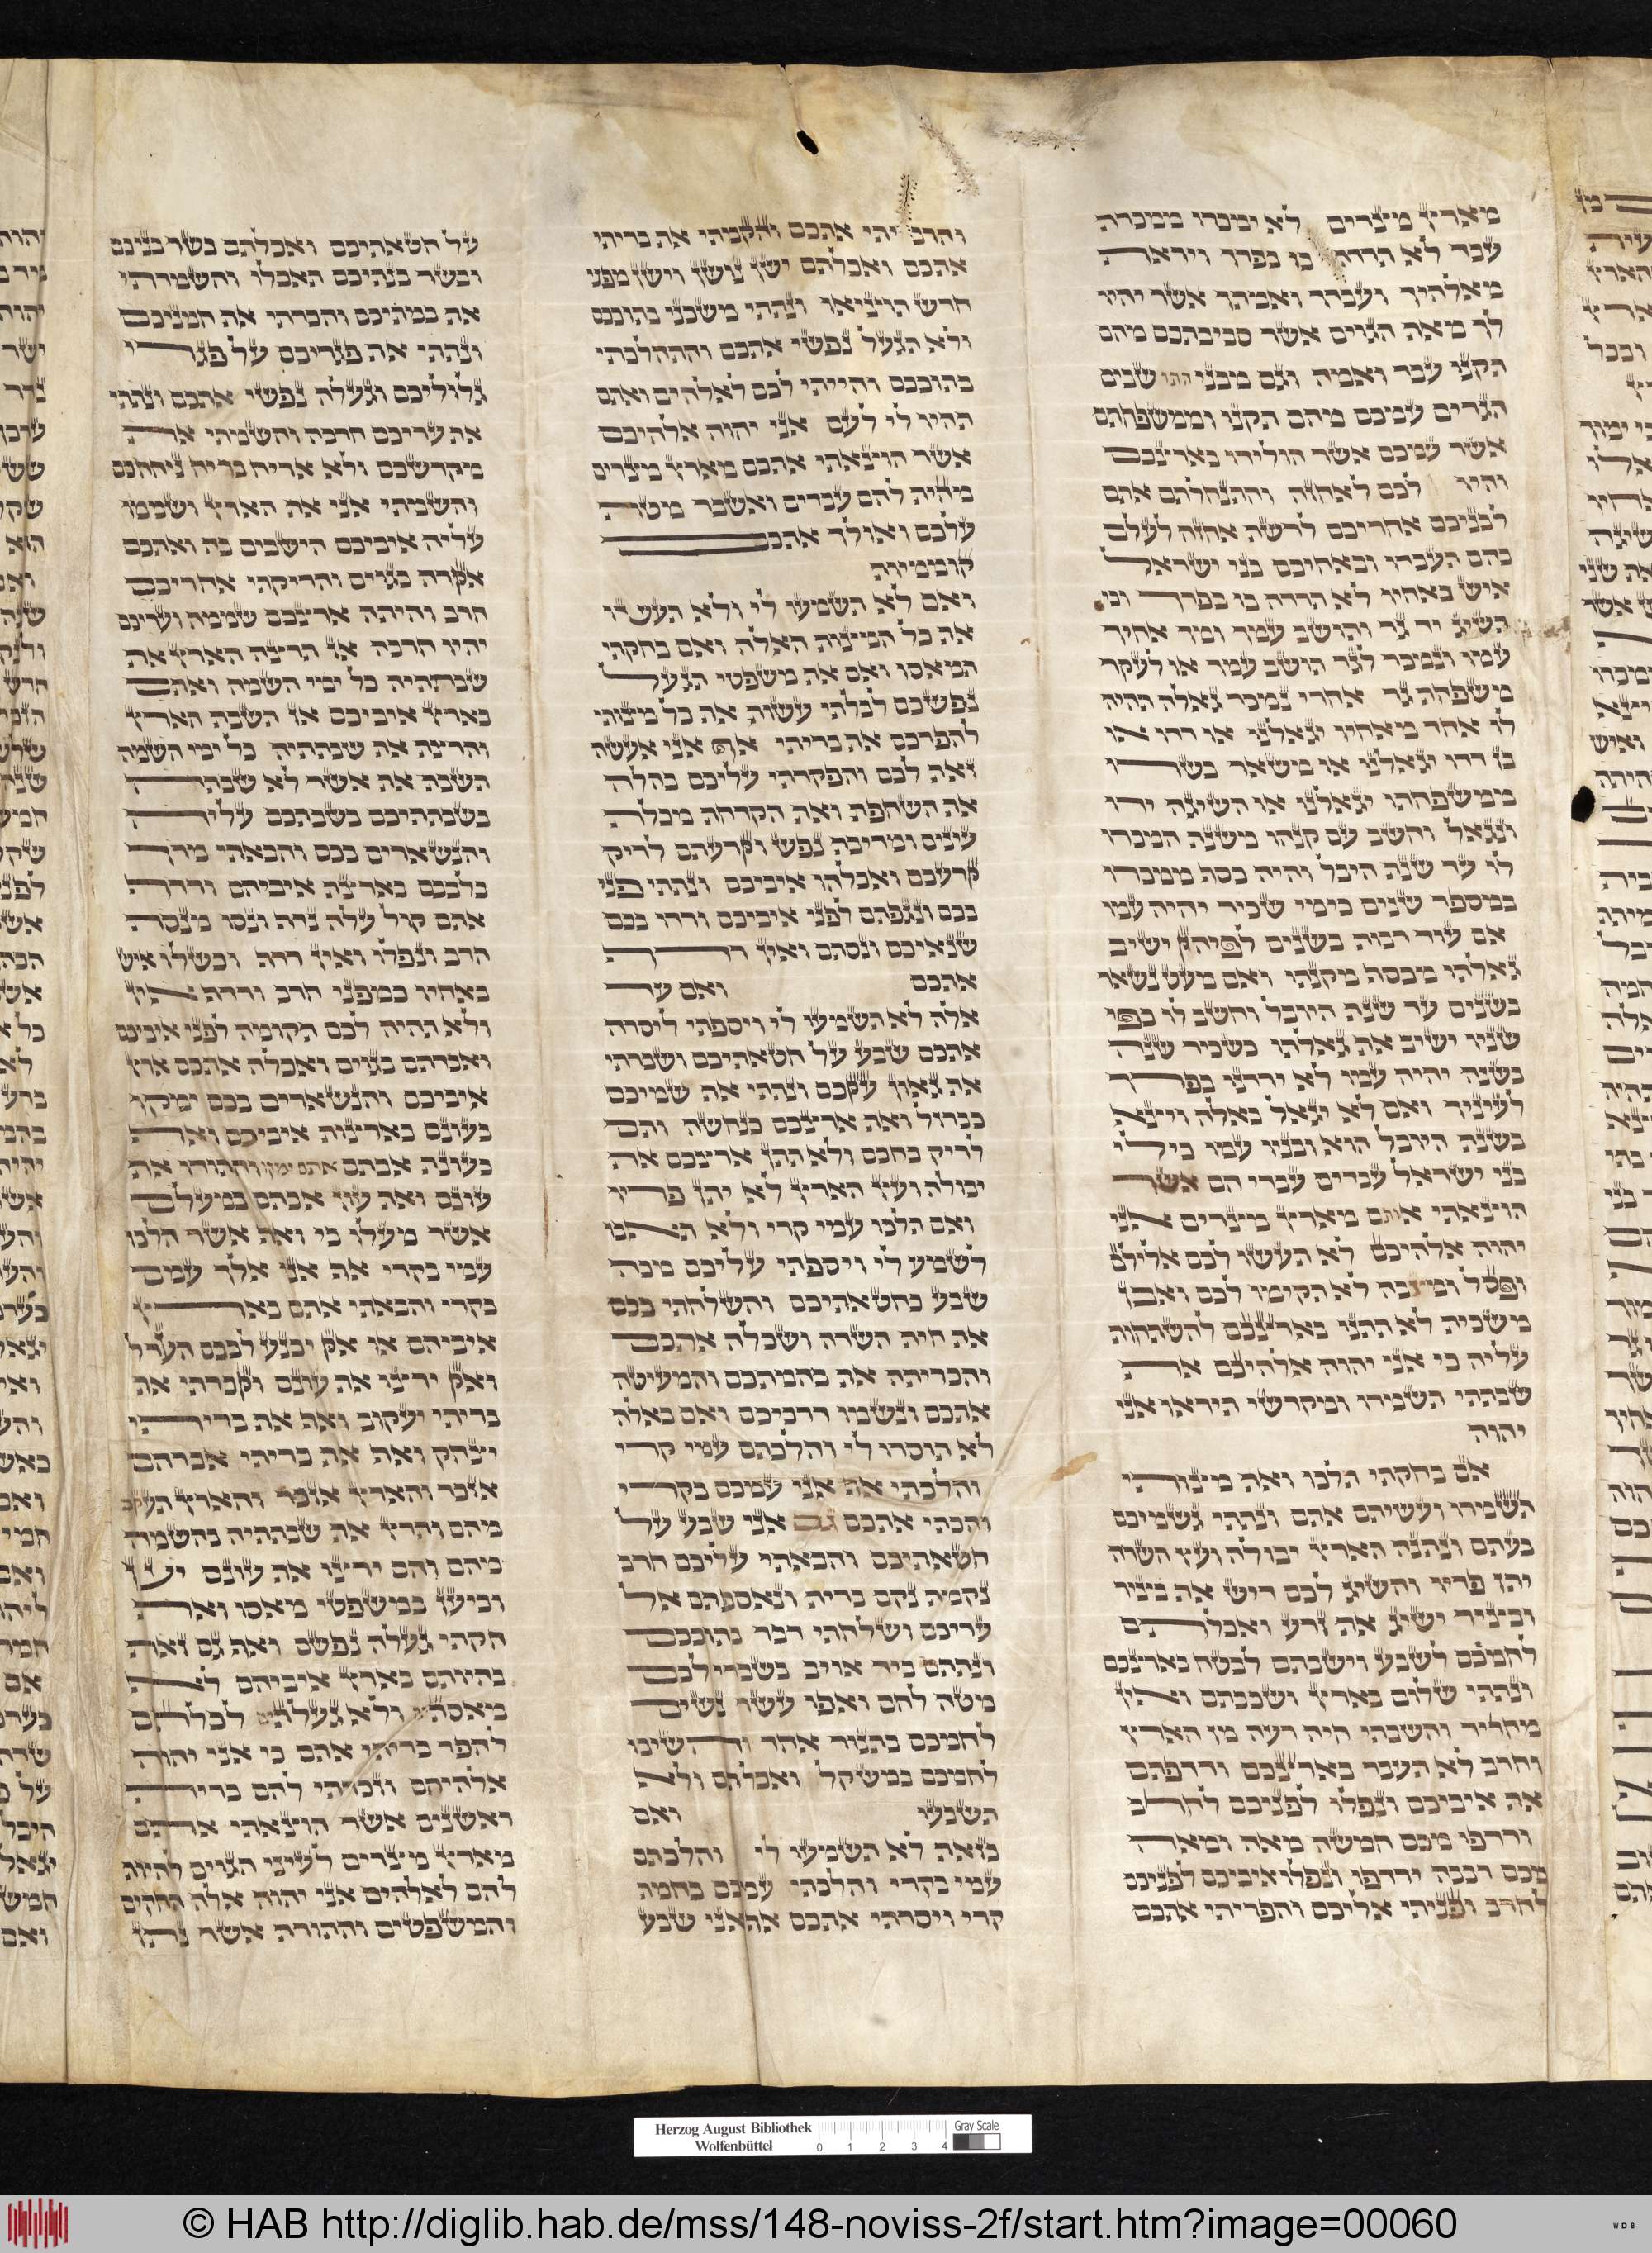 מארץ מצרים לא ימכרו ממכרת
עבד לא תרדה בו בפרך ויראת
מאלהיך ועבדך ואמתך אשר יהיו
לך מאת הגוים אשר סביבתכם מהם
תקנו עבד ואמה וגם מבני התושבים
הגרים עמכם מהם תקנו וממשפחתם
אשר עמכם אשר הולידו בארצכם
והיו לכם לאחזה והתנחלתם אתם
לבניכם אחריכם לרשת אחזה לעלם
בהם תעבדו ובאחיכם בני ישראל
איש באחיו לא תרדה בו בפרך וכי
תשיג יד גר ותושב עמך ומך אחיך
עמו ונמכר לגר תושב עמך או לעקר
משפחת גר אחרי נמכר גאלה תהיה
לו אחד מאחיו יגאלנו או דדו או
בן דדו יגאלנו או משאר בשרו
ממשפחתו יגאלנו או השיגה ידו
ונגאל וחשב עם קנהו משנת המכרו
לו עד שנת היבל והיה כסף ממכרו
במספר שנים כימי שכיר יהיה עמו
אם עוד רבות בשנים לפיהן ישיב
גאלתו מכסף מקנתו ואם מעט נשאר
בשנים עד שנת היובל וחשב לו כפי
שניו ישיב את גאלתו כשכיר שנה
בשנה יהיה עמו לא ירדנו בפרך
לעיניך ואם לא יגאל באלה ויצא
בשנת היובל הוא ובניו עמו כי לי
בני ישראל עבדים עבדי הם אשר
הוצאתי אותם מארץ מצרים אני
יהוה אלהיכם לא תעשו לכם אלילם
ופסל ומצבה לא תקימו לכם ואבן
משכית לא תתנו בארצכם להשתחות
עליה כי אני יהוה אלהיכם את
שבתתי תשמרו ומקדשי תיראו אני
יהוה
אם בחקתי תלכו ואת מצותי
תשמרו ועשיתם אתם ונתתי גשמיכם
בעתם ונתנה הארץ יבולה ועץ השדה
יתן פריו והשיג לכם דיש את בציר
ובציר ישיג את זרע ואכלתם
לחמכם לשבע וישבתם לבטח בארצכם
ונתתי שלום בארץ ושכבתם ואין
מחריד והשבתי חיה רעה מן הארץ
וחרב לא תעבר בארצכם ורדפתם
את איביכם ונפלו לפניכם לחרב
ורדפו מכם חמשה מאה ומאה
מכם רבבה ירדפו ונפלו איביכם לפניכם
לחרב ופניתי אליכם והפריתי אתכם
והרביתי אתכם והקמתי את בריתי
אתכם ואכלתם ישן נושן וישן מפני
חדש תוציאו ונתתי משכני בתוככם
ולא תגעל נפשי אתכם והתהלכתי
בתוככם והייתי לכם לאלהים ואתם
תהיו לי לעם אני יהוה אלהיכם
אשר הוצאתי אתכם מארץ מצרים
מהית להם עבדים ואשבר מטת
עלכם ואולך אתכם
קוממיות
ואם לא תשמעו לי ולא תעשו
את כל המצות האלה ואם בחקתי
תמאסו ואם את משפטי תגעל
נפשכם לבלתי עשות את כל מצותי
להפרכם את בריתי אף אני אעשה
זאת לכם והפקדתי עליכם בהלה
את השחפת ואת הקדחת מכלות
עינים ומדיבת נפש וזרעתם לריק
זרעכם ואכלהו איביכם ונתתי פני
בכם ונגפתם לפני איביכם ורדו בכם
שנאיכם ונסתם ואין רדף
אתכם ואם עד
אלה לא תשמעו לי ויספתי ליסרה
אתכם שבע על חטאתיכם ושברתי
את גאון עזכם ונתתי את שמיכם
כברזל ואת ארצכם כנחשה ותם
לריק כחכם ולא תתן ארצכם את
יבולה ועץ הארץ לא יתן פריו
ואם תלכו עמי קרי ולא תאבו
לשמע לי ויספתי עליכם מכה
שבע כחטאתיכם והשלחתי בכם
את חית השדה ושכלה אתכם
והכריתה את בהמתכם והמעיטה
אתכם ונשמו דרכיכם ואם באלה
לא תוסרו לי והלכתם עמי קרי
והלכתי אף אני עמכם בקרי
והכתי אתכם גם אני שבע על
חטאתיכם והבאתי עליכם חרב
נקמת נקם ברית ונאספתם אל
עריכם ושלחתי דבר בתוככם
ונתתם ביד אויב בשברי לכם
מטה לחם ואפו עשר נשים
לחמכם בתנור אחד והשיבו
לחמכם במשקל ואכלתם ולא
תשבעו ואם
בזאת לא תשמעו לי והלכתם
עמי בקרי והלכתי עמכם בחמת
קרי ויסרתי אתכם אף אני שבע
על חטאתיכם ואכלתם בשר בניכם
ובשר בנתיכם תאכלו והשמדתי
את במתיכם והכרתי את חמניכם
ונתתי את פגריכם על פגרי
גלוליכם וגעלה נפשי אתכם ונתתי
את עריכם חרבה והשמותי את
מקדשכם ולא אריח בריח ניחחכם
והשמתי אני את הארץ ושממו
עליה איביכם הישבים בה ואתכם
אזרה בגוים והריקתי אחריכם
חרב והיתה ארצכם שממה ועריכם
יהיו חרבה אז תרצה הארץ את
שבתתיה כל ימי השמה ואתם
בארץ איביכם אז תשבת הארץ
והרצת את שבתתיה כל ימי השמה
תשבת את אשר לא שבתה
בשבתתיכם בשבתכם עליה
והנשארים בכם והבאתי מרך
בלבבם בארצת איביהם ורדף
אתם קול עלה נדף ונסו מנסת
חרב ונפלו ואין רדף וכשלו איש
באחיו כמפני חרב ורדף אין
ולא תהיה לכם תקומה לפני איביכם
ואבדתם בגוים ואכלה אתכם ארץ
איביכם והנשארים בכם ימקו
בעונם בארצות איביכם ואף
בעונת אבתם אתם ימקו והתודו את
עונם ואת עון אבתם במעלם
אשר מעלו בי ואף אשר הלכו
עמי בקרי אף אני אלך עמם
בקרי והבאתי אתם בארץ
איביהם או אז יכנע לבבם הערל
ואז ירצו את עונם וזכרתי את
בריתי יעקוב ואף את בריתי
יצחק ואף את בריתי אברהם
אזכר והארץ אזכר והארץ תעזב
מהם ותרץ את שבתתיה בהשמה
מהם והם ירצו את עונם יען
וביען במשפטי מאסו ואת
חקתי געלה נפשם ואף גם זאת
בהיותם בארץ איביהם לא
מאסתים ולא געלתים לכלתם
להפר בריתי אתם כי אני יהוה
אלהיהם וזכרתי להם ברית
ראשנים אשר הוצאתי אתם
מארץ מצרים לעיני הגוים להיות
להם לאלהים אני יהוה אלה החקים
והמשפטים והתורה אשר נתן
Herzog August Bibliothek
Wolfenbüttel
0 1 2 3 4
Gray Scale
© HAB http://diglib.hab.de/mss/148-noviss-2f/start.htm?image=00060